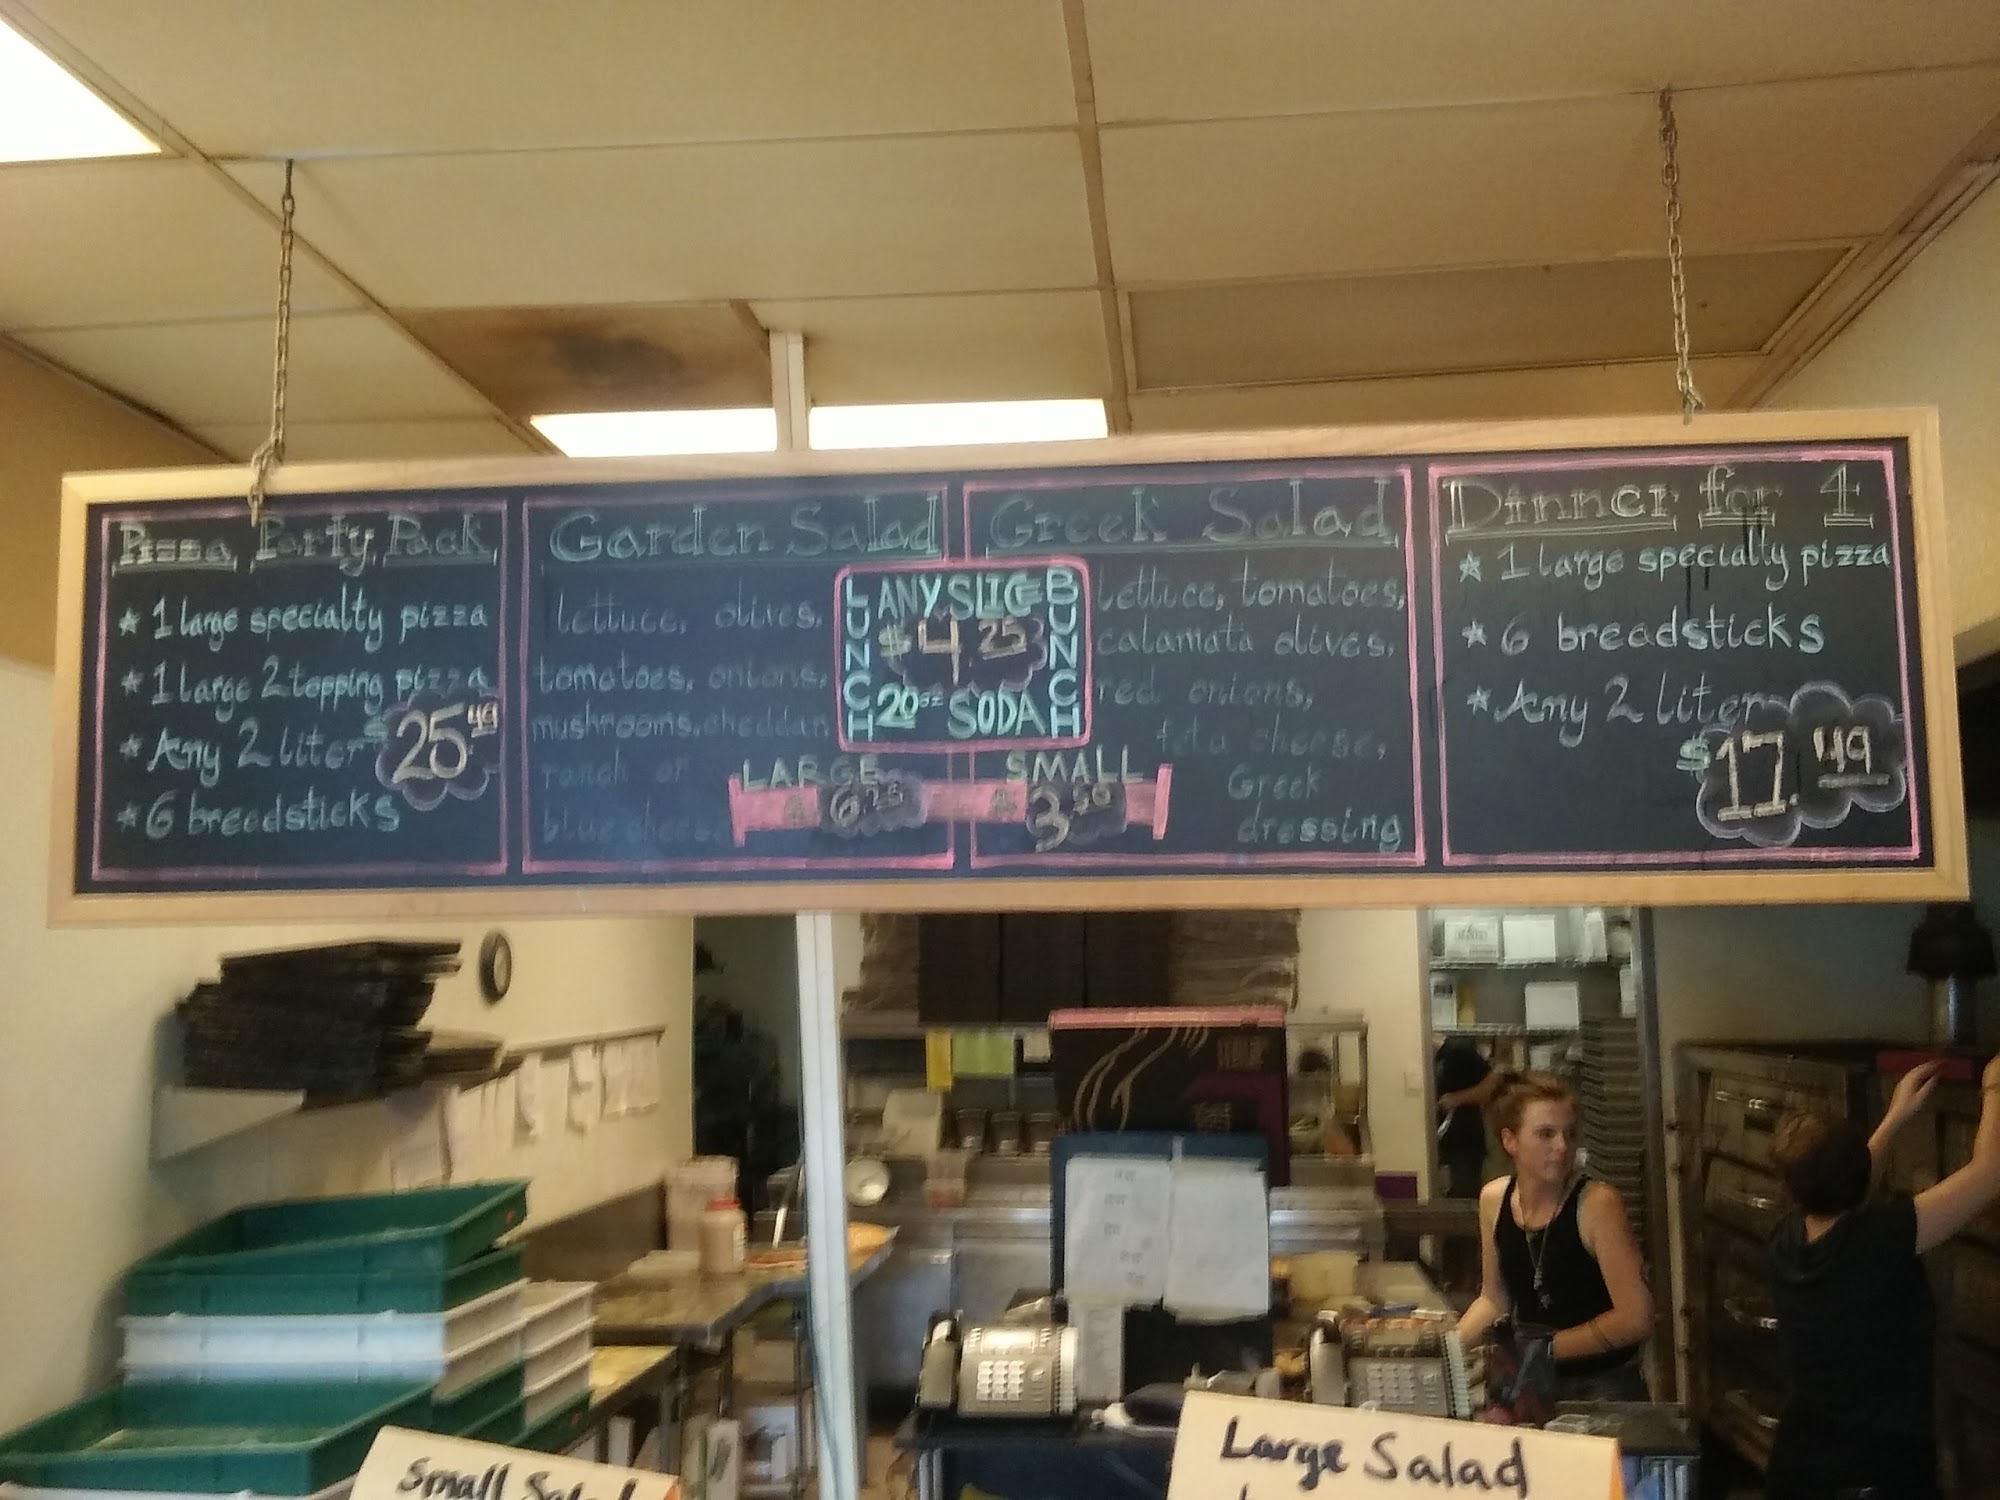 Pizza Party Pack
★ 1 large specialty pizza
★ 1 large 2 topping pizza
★ Any 2 liter
★ 6 breadsticks
$25.49
Garden Salad
lettuce, olives,
tomatoes, onions,
mushrooms, cheddar,
ranch or
blue cheese
LUNCH
ANY SLICE
$4.25
20oz SODA
BUNCH
LARGE
6.25
SMALL
3.50
Greek Salad
lettuce, tomatoes,
calamata olives,
red onions,
feta cheese,
Greek
dressing
Dinner for 4
★ 1 large specialty pizza
★ 6 breadsticks
★ Any 2 liter
$17.49
Small Salad
Large Salad